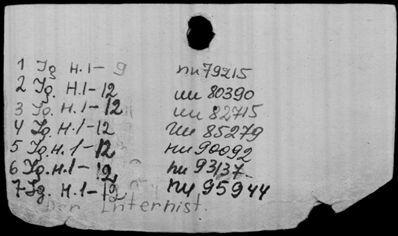 1 Jg. H.1-9 nu 79215
2 Jg. H.1-12 nu 80390
3 Jg. H.1-12 nu 82715
4 Jg. H.1-12 nu 85279
5 Jg. H.1-12 nu 90092
6 Jg. H.1-12 nu 93137.
7 Jg. H.1-12 nu 95944
Der Internist